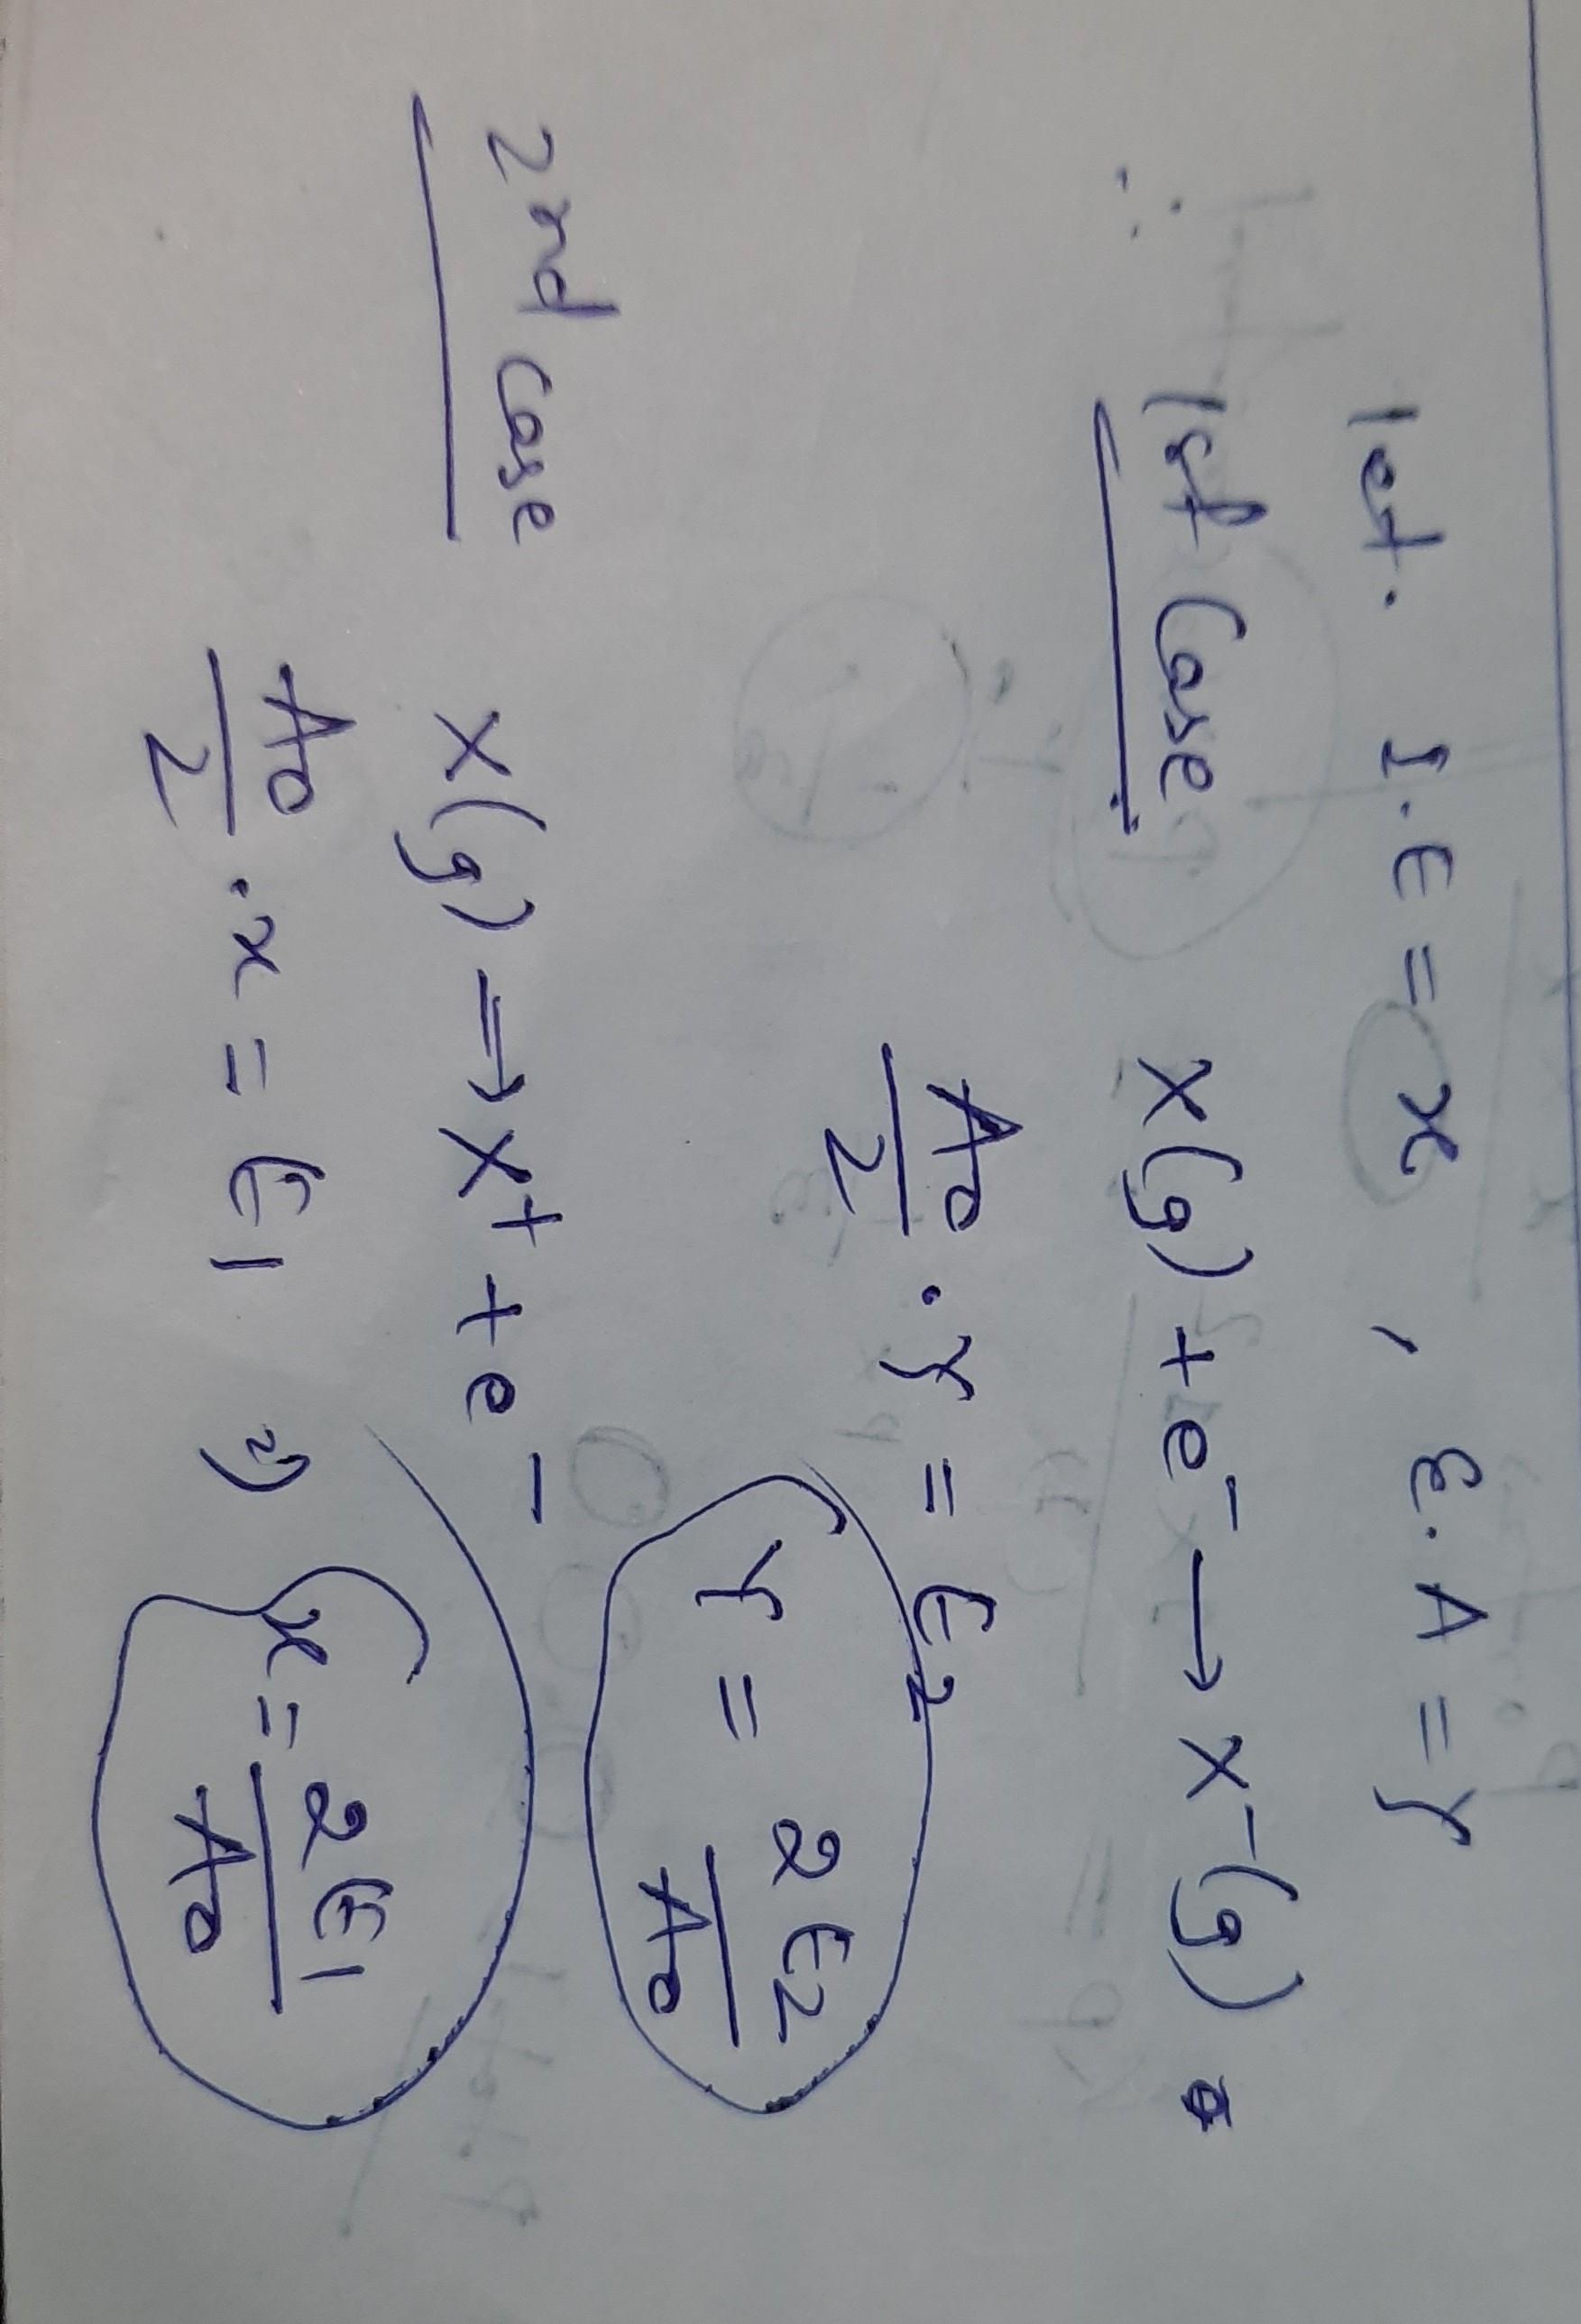 let. I.E = x , E.A = Y
∴ 1st Case X(g) + e⁻ → X⁻(g)
A₀/2 . Y = E₂
Y = 2E₂/A₀
2nd Case X(g) → X⁺ + e⁻
A₀/2 . x = E₁ ⇒ x = 2E₁/A₀